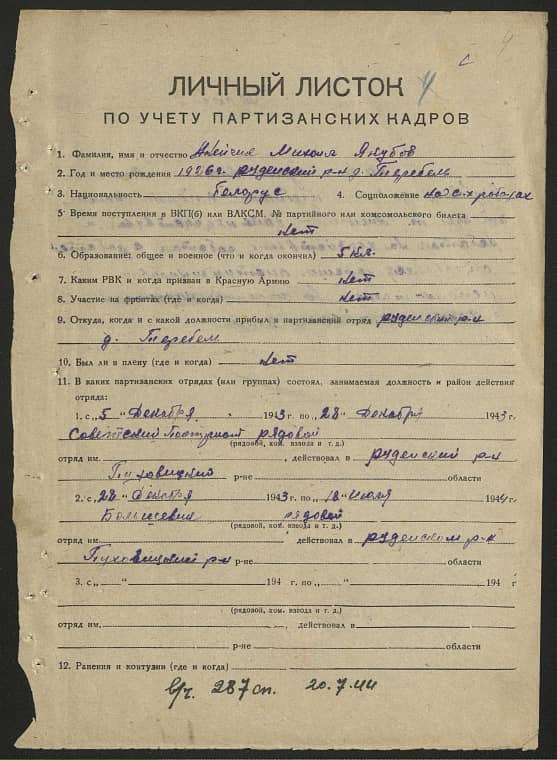 4
ЛИЧНЫЙ ЛИСТОК
ПО УЧЕТУ ПАРТИЗАНСКИХ КАДРОВ
1. Фамилия, имя и отчество Михаил
2. Год и место рождения 1926 г. руденский р-н д. Теребель
3. Национальность Белорус 4. Соцположение на с-х роботах
5. Время поступления в ВКП(б) или ВЛКСМ. № партийного или комсомольского билета
нет
6. Образование: общее и военное (что и когда окончил) 5 кл.
7. Каким РВК и когда призван в Красную Армию нет
8. Участие на фронтах (где и когда) нет
9. Откуда, когда и с какой должности прибыл в партизанский отряд руденский р-н
д. Теребель
10. Был ли в плену (где и когда) нет
11. В каких партизанских отрядах (или группах) состоял, занимаемая должность и район действия
отряда:
1. с „5" Декабря 1943 г. по „28" Декабря 1943 г.
Советский рядовой
(рядовой, ком. взвода и т. д.)
отряд им. , действовал в руденский р-н
Пуховицкий р-не области
2. с „28" Декабря 1943 г. по „18" Июля 1944 г.
Большевик рядовой
(рядовой, ком. взвода и т. д.)
отряд им. действовал в руденском р-н
Пуховицкий р-н р-не области
3. с „ " 194 г. по „ " 194 г
(рядовой, ком. взвода и т. д.)
отряд им. действовал в
р-не области
12. Ранения и контузии (где и когда)
в/ч. 287 сп. 20.7.44